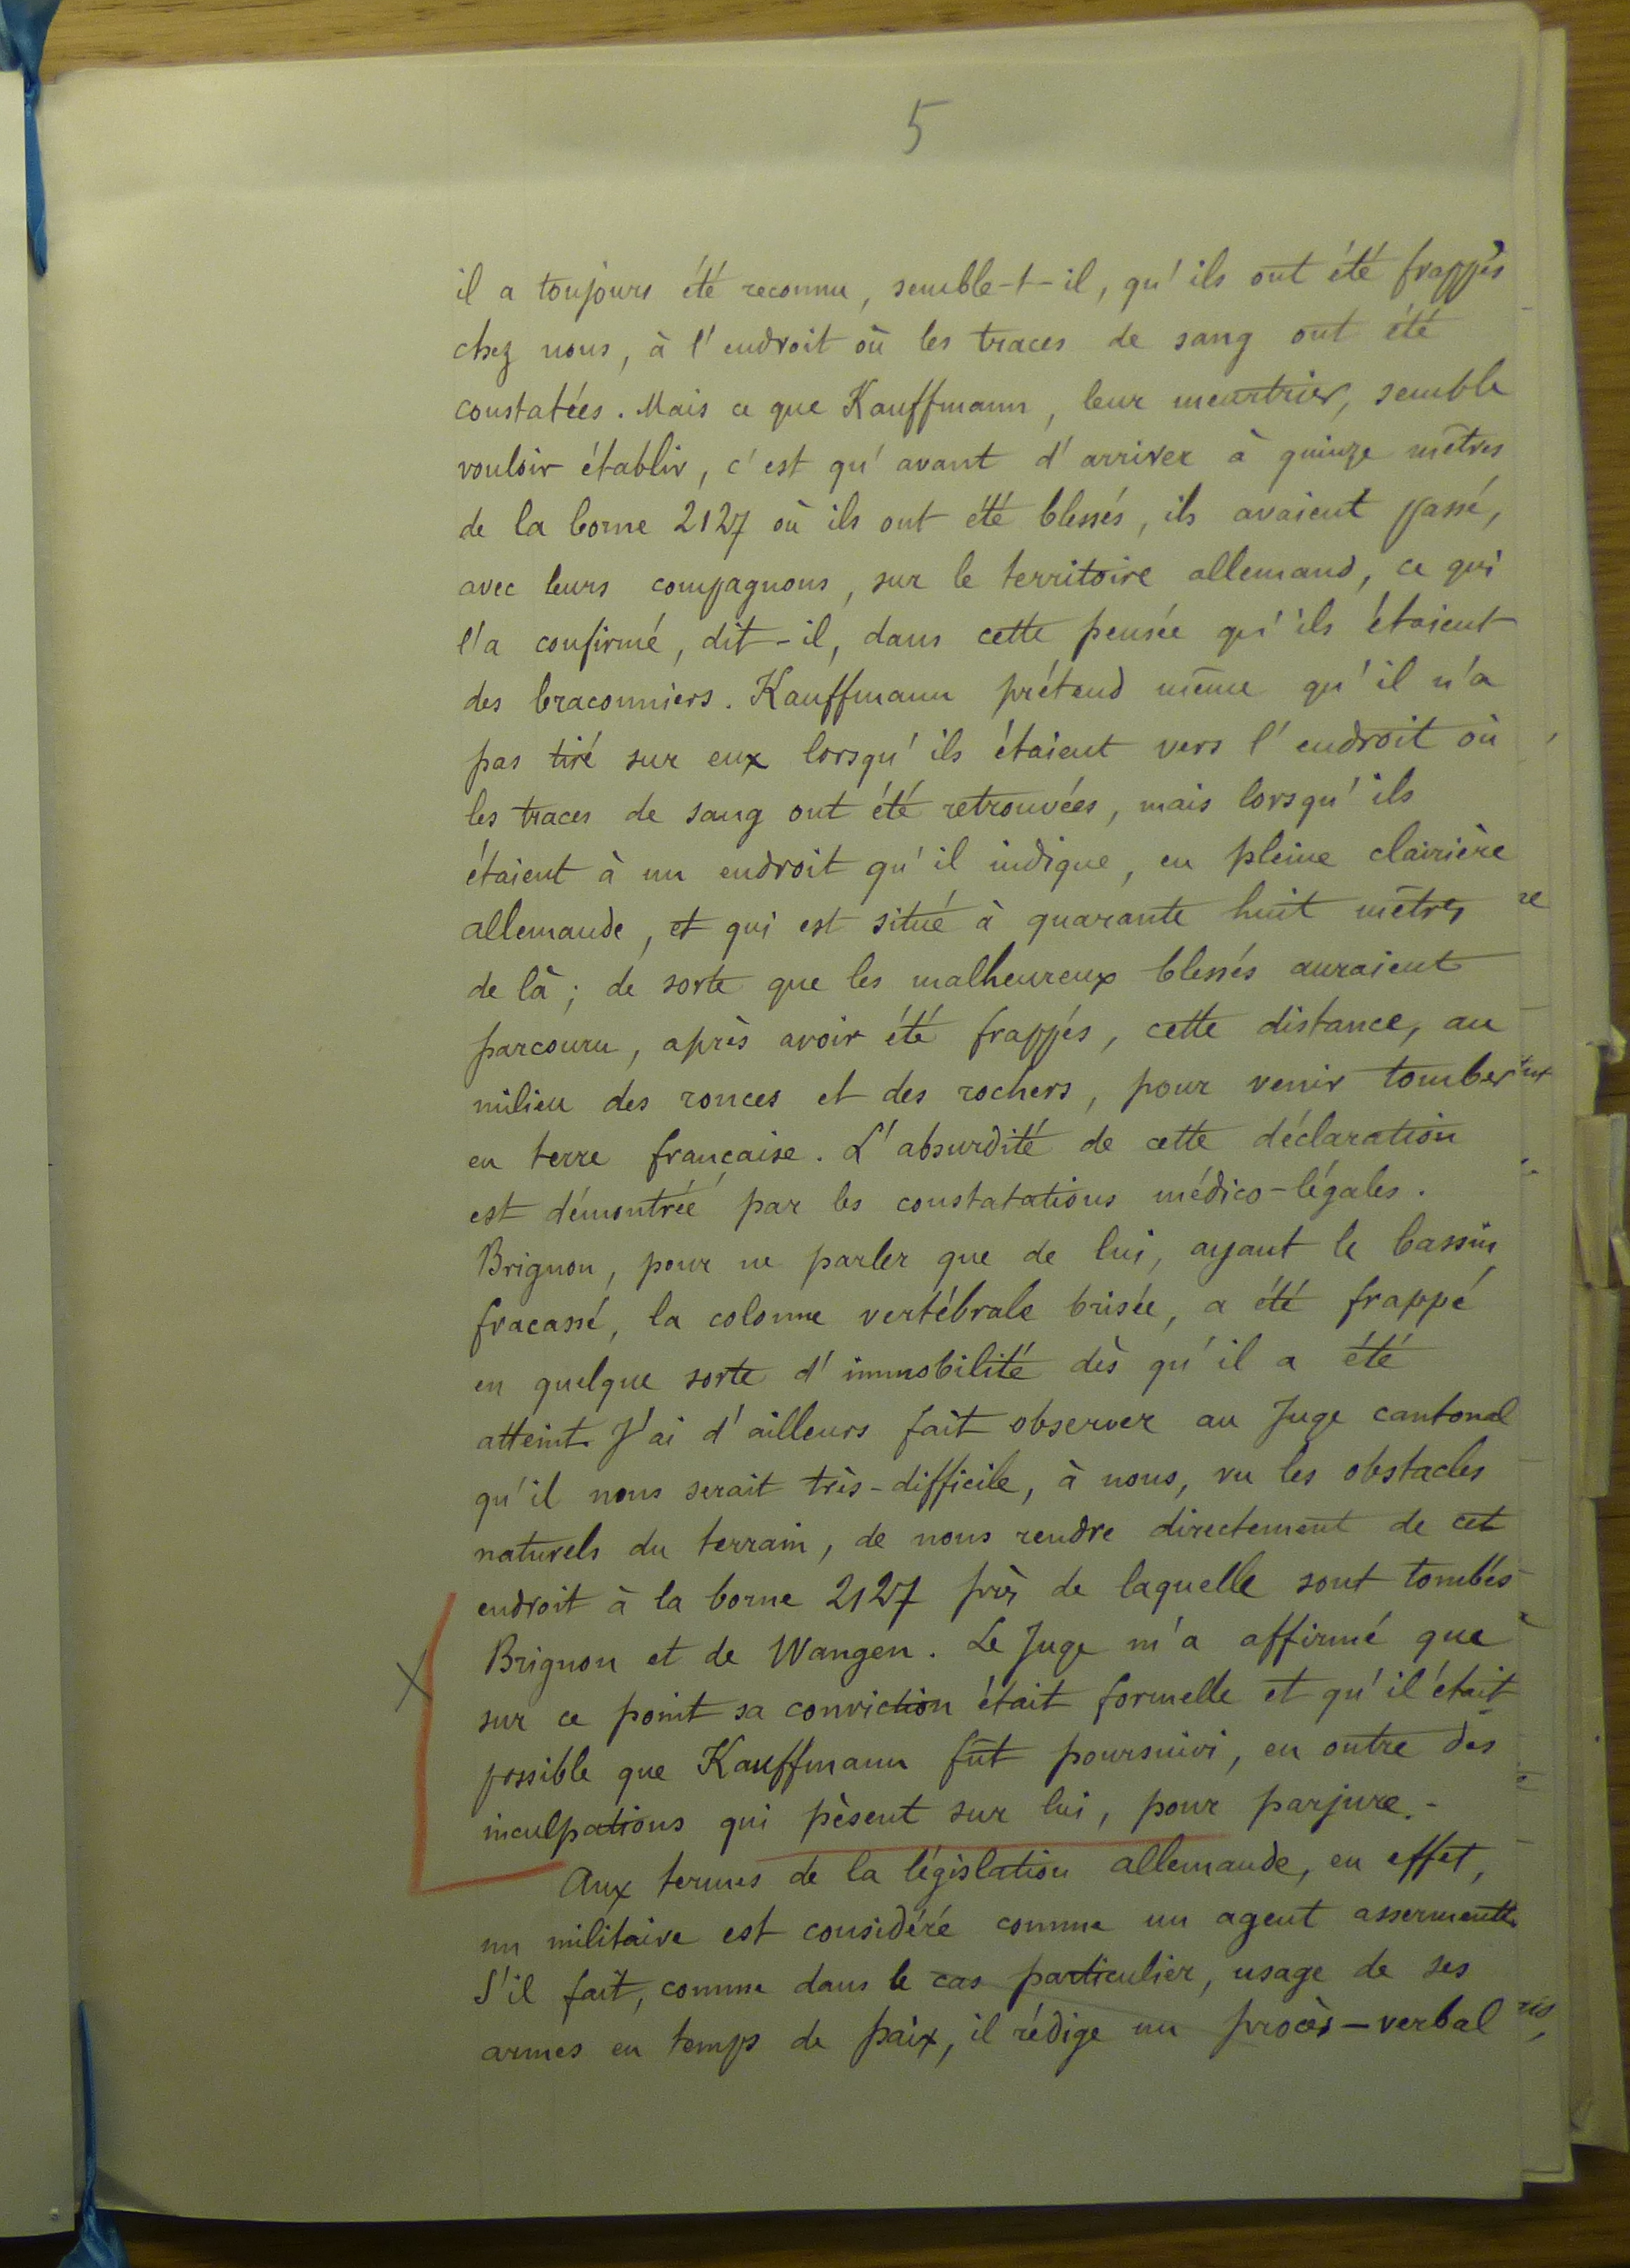 5
il a toujours été reconnu, semble-t-il, qu'ils ont été frappés
chez nous, à l'endroit où les traces de sang ont été
constatées. Mais ce que Kauffmann, leur meurtrier, semble
vouloir établir, c'est qu'avant d'arriver à quinze mètres
de la borne 2127 où ils ont été blessés, ils avaient passé,
avec leurs compagnons, sur le territoire allemand, ce qui
l'a confirmé, dit-il, dans cette pensée qu'ils étaient
des braconniers. Kauffmann prétend même qu'il n'a
pas tiré sur eux lorsqu'ils étaient vers l'endroit où
les traces de sang ont été retrouvées, mais lorsqu'ils
étaient à un endroit qu'il indique, en pleine clairière
allemande, et qui est situé à quarante huit mètres
de là ; de sorte que les malheureux blessés auraient
parcouru, après avoir été frappés, cette distance, au
milieu des ronces et des rochers, pour venir tomber
en terre française. L'absurdité de cette déclaration
est démontrée par les constatations médico-légales.
Brignon, pour ne parler que de lui, ayant le bassin
fracassé, la colonne vertébrale brisée, a été frappé
en quelque sorte d'immobilité dès qu'il a été
atteint. J'ai d'ailleurs fait observer au Juge cantonal
qu'il nous serait très-difficile, à nous, vu les obstacles
naturels du terrain, de nous rendre directement de cet
endroit à la borne 2127 près de laquelle sont tombés
Brignon et de Wangen. Le Juge m'a affirmé que
sur ce point sa conviction était formelle et qu'il était
possible que Kauffmann fût poursuivi, en outre des
inculpations qui pèsent sur lui, pour parjure.-
Aux termes de la législation allemande, en effet,
un militaire est considéré comme un agent assermenté.
S'il fait, comme dans le cas particulier, usage de ses
armes en temps de paix, il rédige un procès-verbal